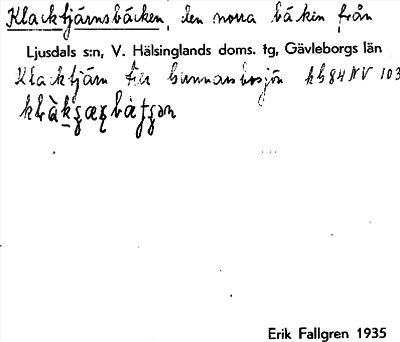 Klacktjärnsbäcken, den norra bäcken från
Ljusdals s:n, V. Hälsinglands doms. tg, Gävleborgs län
Klacktjärn till kb 84 NV 103
Erik Fallgren 1935